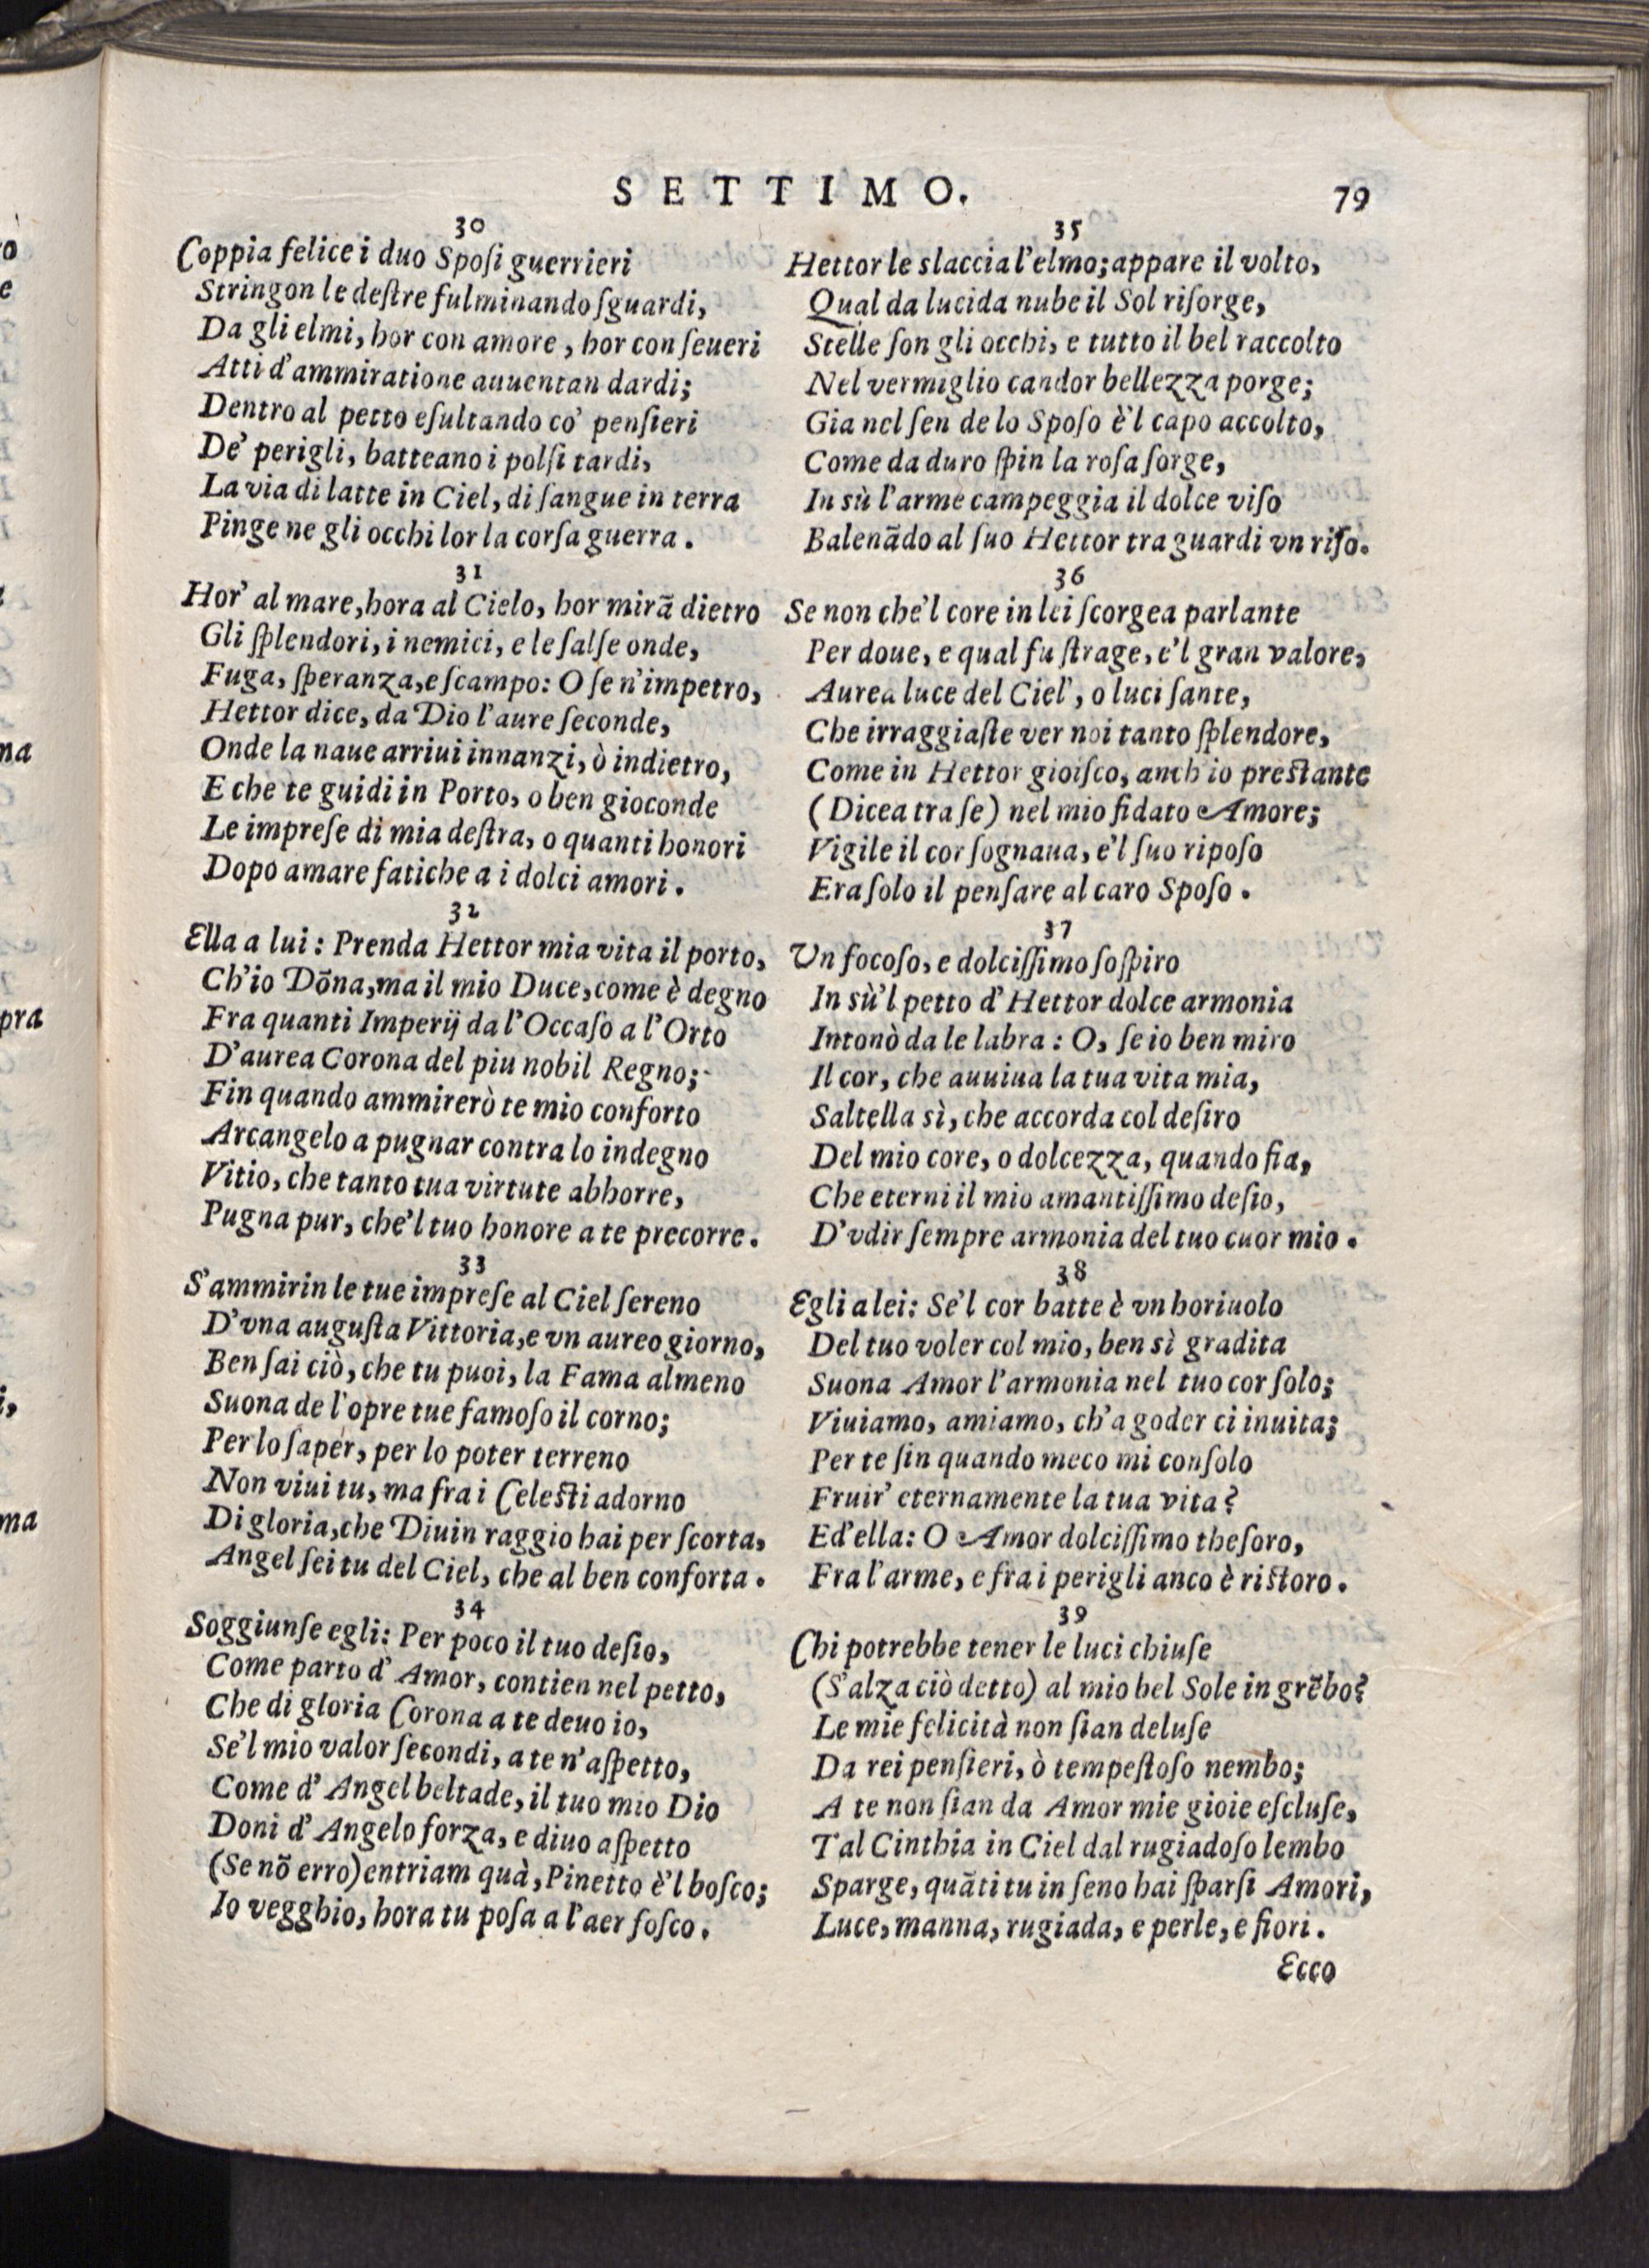 SETTIMO. 79
30
Coppia felice i duo Sposi guerrieri
Stringon le destre fulminando sguardi,
Da gli elmi, hor con amore, hor con seueri
Atti d'ammiratione auuentan dardi;
Dentro al petto esultando co' pensieri
De' perigli, batteano i polsi tardi,
La via di latte in Ciel, di sangue in terra
Pinge ne gli occhi lor la corsa guerra.
31
Hor' al mare, hora al Cielo, hor mirā dietro
Gli splendori, i nemici, e le salse onde,
Fuga, speranza, e scampo: O se n'impetro,
Hettor dice, da Dio l'aure seconde,
Onde la naue arriui innanzi, ò indietro,
E che te guidi in Porto, o ben gioconde
Le imprese di mia destra, o quanti honori
Dopo amare fatiche a i dolci amori.
32
Ella a lui: Prenda Hettor mia vita il porto,
Ch'io Dōna, ma il mio Duce, come è degno
Fra quanti Imperij da l'Occaso a l'Orto
D'aurea Corona del piu nobil Regno;
Fin quando ammirerò te mio conforto
Arcangelo a pugnar contra lo indegno
Vitio, che tanto tua virtute abhorre,
Pugna pur, che'l tuo honore a te precorre.
33
S'ammirin le tue imprese al Ciel sereno
D'vna augusta Vittoria, e vn aureo giorno,
Ben sai ciò, che tu puoi, la Fama almeno
Suona de l'opre tue famoso il corno;
Per lo saper, per lo poter terreno
Non viui tu, ma fra i Celesti adorno
Di gloria, che Diuin raggio hai per scorta,
Angel sei tu del Ciel, che al ben conforta.
34
Soggiunse egli: Per poco il tuo desio,
Come parto d'Amor, contien nel petto,
Che di gloria Corona a te deuo io,
Se'l mio valor secondi, a te n'aspetto,
Come d'Angel beltade, il tuo mio Dio
Doni d'Angelo forza, e diuo aspetto
(Se nō erro) entriam quà, Pinetto è'l bosco;
Io vegghio, hora tu posa a l'aer fosco.
35
Hettor le slaccia l'elmo; appare il volto,
Qual da lucida nube il Sol risorge,
Stelle son gli occhi, e tutto il bel raccolto
Nel vermiglio candor bellezza porge;
Gia nel sen de lo Sposo è'l capo accolto,
Come da duro spin la rosa sorge,
In sù l'arme campeggia il dolce viso
Balenādo al suo Hettor tra guardi vn riso.
36
Se non che'l core in lei scorgea parlante
Per doue, e qual fu strage, e'l gran valore,
Aurea luce del Ciel', o luci sante,
Che irraggiaste ver noi tanto splendore,
Come in Hettor gioisco, anch'io prestante
(Dicea tra se) nel mio fidato Amore;
Vigile il cor sognaua, e'l suo riposo
Era solo il pensare al caro Sposo.
37
Vn focoso, e dolcissimo sospiro
In sù'l petto d'Hettor dolce armonia
Intonò da le labra: O, se io ben miro
Il cor, che auuiua la tua vita mia,
Saltella sì, che accorda col desiro
Del mio core, o dolcezza, quando fia,
Che eterni il mio amantissimo desio,
D'vdir sempre armonia del tuo cuor mio.
38
Egli a lei: Se'l cor batte è vn horiuolo
Del tuo voler col mio, ben sì gradita
Suona Amor l'armonia nel tuo cor solo;
Viuiamo, amiamo, ch'a goder ci inuita;
Per te sin quando meco mi consolo
Fruir' eternamente la tua vita?
Ed'ella: O Amor dolcissimo thesoro,
Fra l'arme, e fra i perigli anco è ristoro.
39
Chi potrebbe tener le luci chiuse
(S'alza ciò detto) al mio bel Sole in grēbo?
Le mie felicità non sian deluse
Da rei pensieri, ò tempestoso nembo;
A te non sian da Amor mie gioie escluse,
Tal Cinthia in Ciel dal rugiadoso lembo
Sparge, quāti tu in seno hai sparsi Amori,
Luce, manna, rugiada, e perle, e fiori.
Ecco